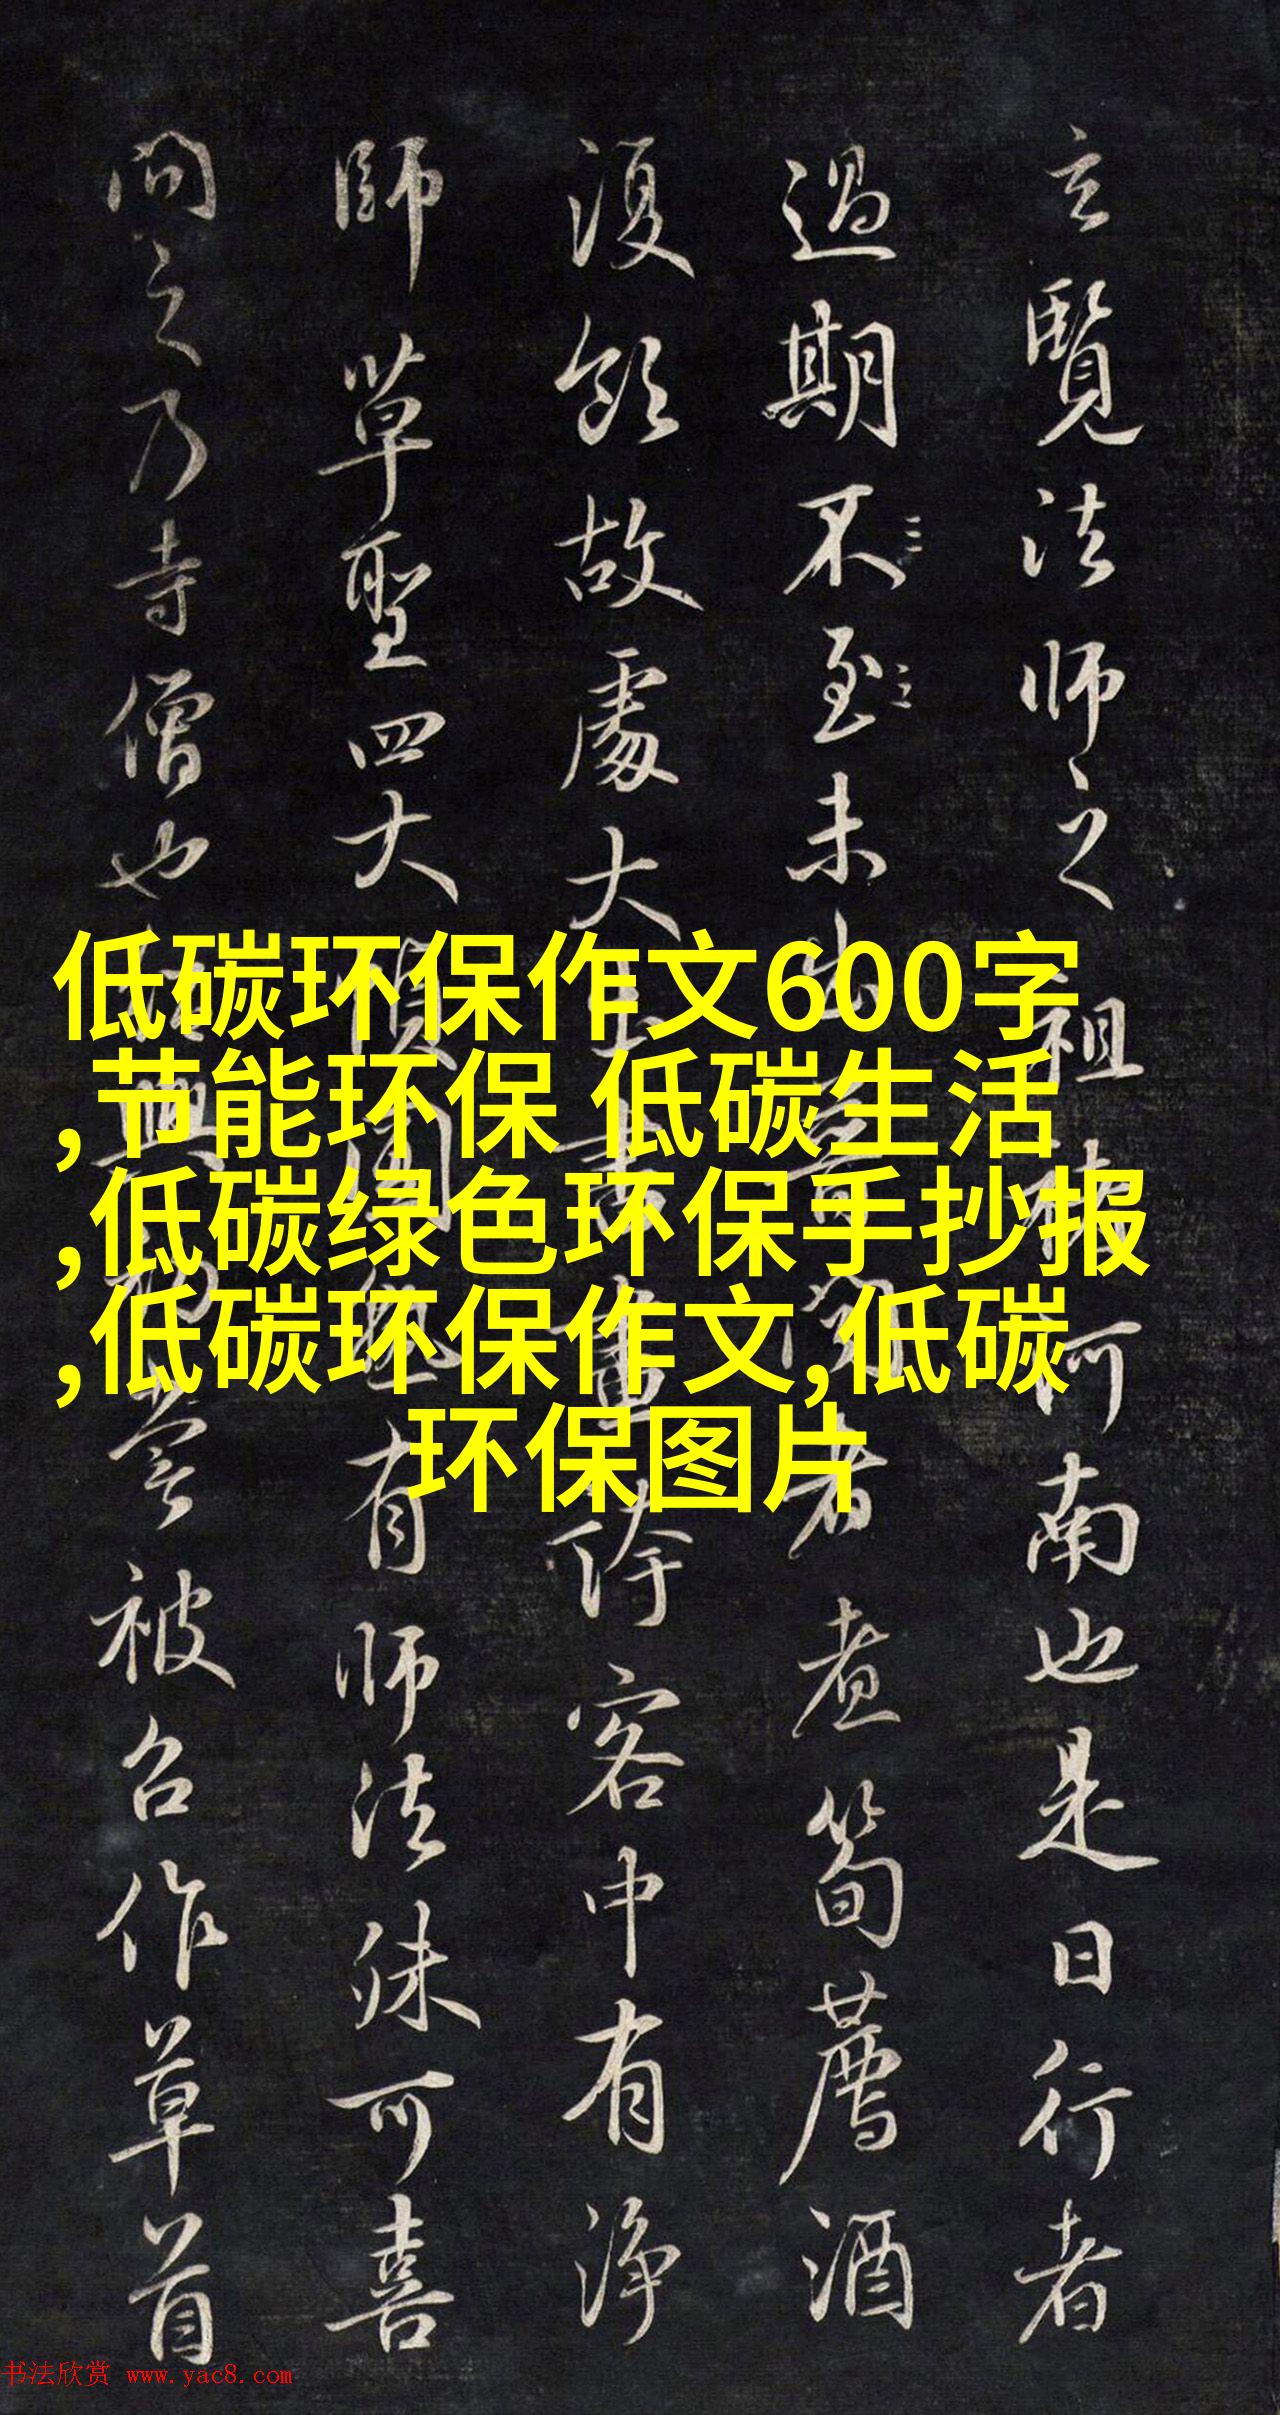 低碳环保作文600字
,节能环保 低碳生活
,低碳绿色环保手抄报
,低碳环保作文,低碳
环保图片
玄覽法师之祖河南也是日行者
過期不至未者煮筍薦酒
復飲故處大客中有淨
師草聖四大有师法殊可喜
问之乃寺僧也興被召作草首
书法欣赏 www.yac8.com